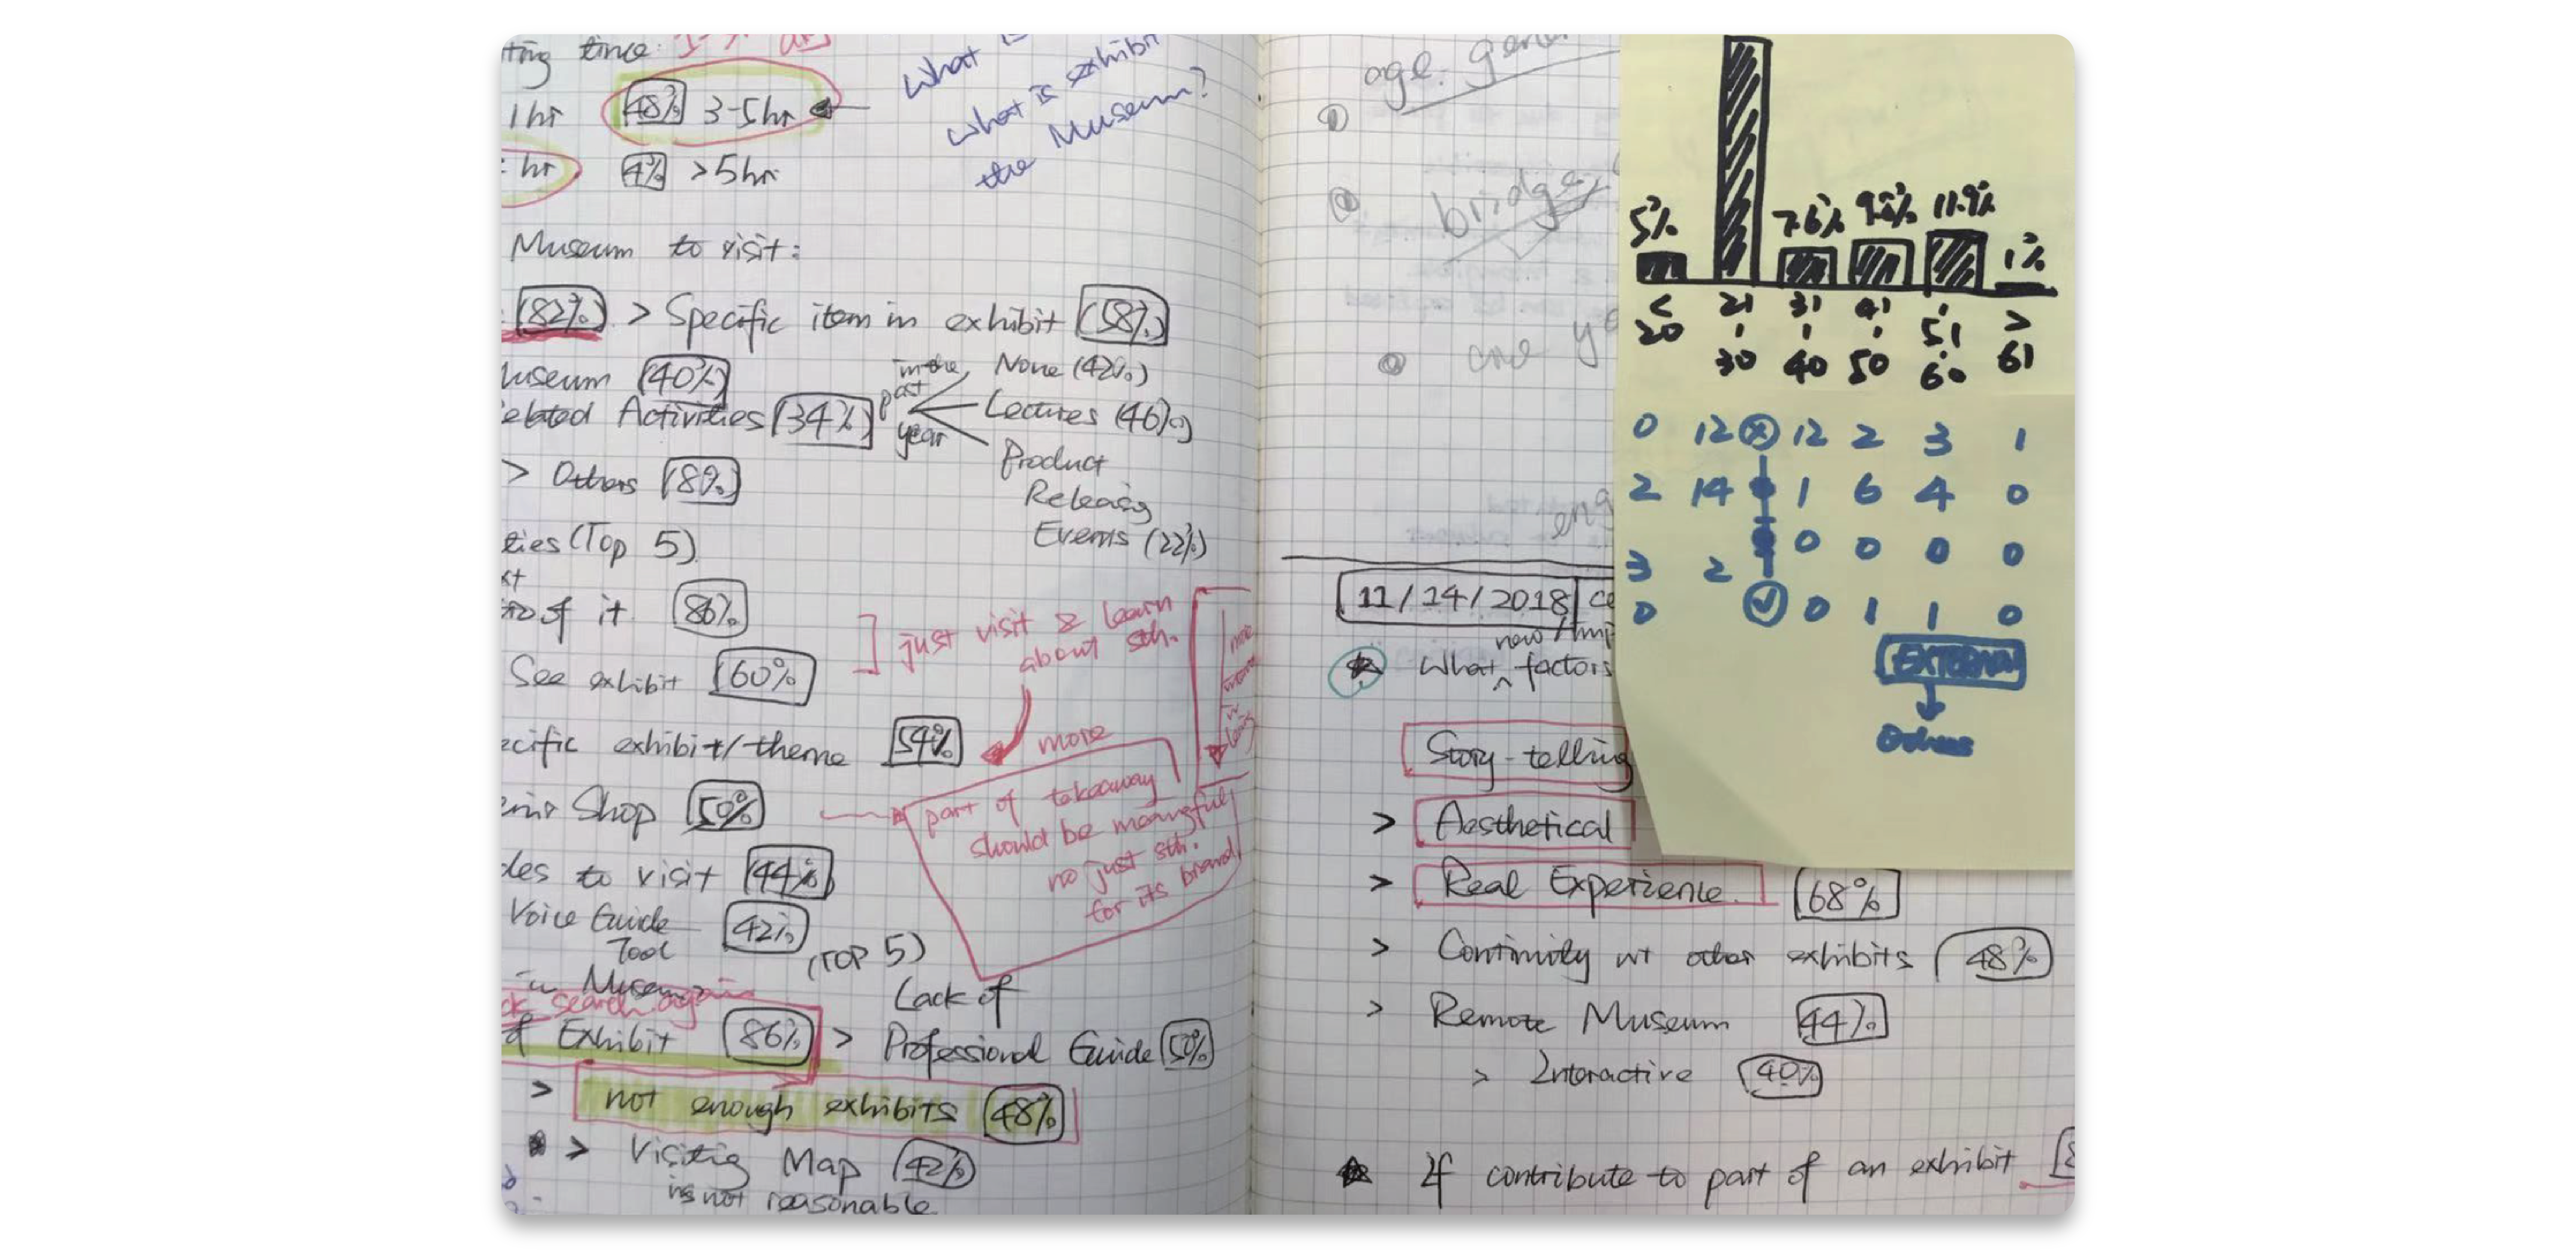 ting time:
1 hr 48% 3-5hr
hr 4% >5hr
What is
What is exhibit
the Museum?
Museum to visit:
(82%) > Specific item in exhibit (58%)
Museum (40%)
elated Activities (34%)
in the
past
year
None (42%)
Lectures (46%)
Product
Releasing
Events (22%)
> Others (8%)
ties (Top 5)
of it 86%
See exhibit 60%
] just visit & learn
about sth.
ecific exhibit/theme 54%
more
part of takeaway
should be meaningful,
no just sth.
for its brand
Shop 50%
des to visit 44%
Voice Guide 42%
Tool
in Museum
ck search again
f Exhibit 86%
(TOP 5)
> Lack of
Professional Guide 50%
> not enough exhibits 48%
> Visiting Map 42%
is not reasonable
age.
①
bridge
one
11/14/2018
new
What factors
Story-telling
> Aesthetical
> Real Experience 68%
> Continuity wt other exhibits 48%
> Remote Museum 44%
> Interactive 40%
If contribute to part of an exhibit
5% 7.6% 11.9% 1%
< 20
21 30
31 40
41 50
51 60
> 61
0 12 12 2 3 1
2 14 1 6 4 0
3 2 0 0 0 0
0 0 1 1 0
EXTERNAL
Others